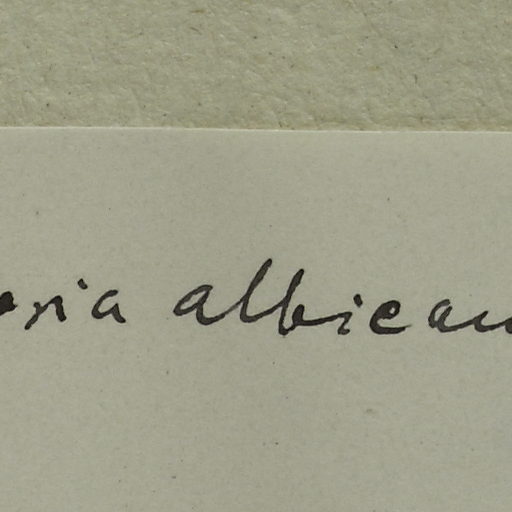 oria albican